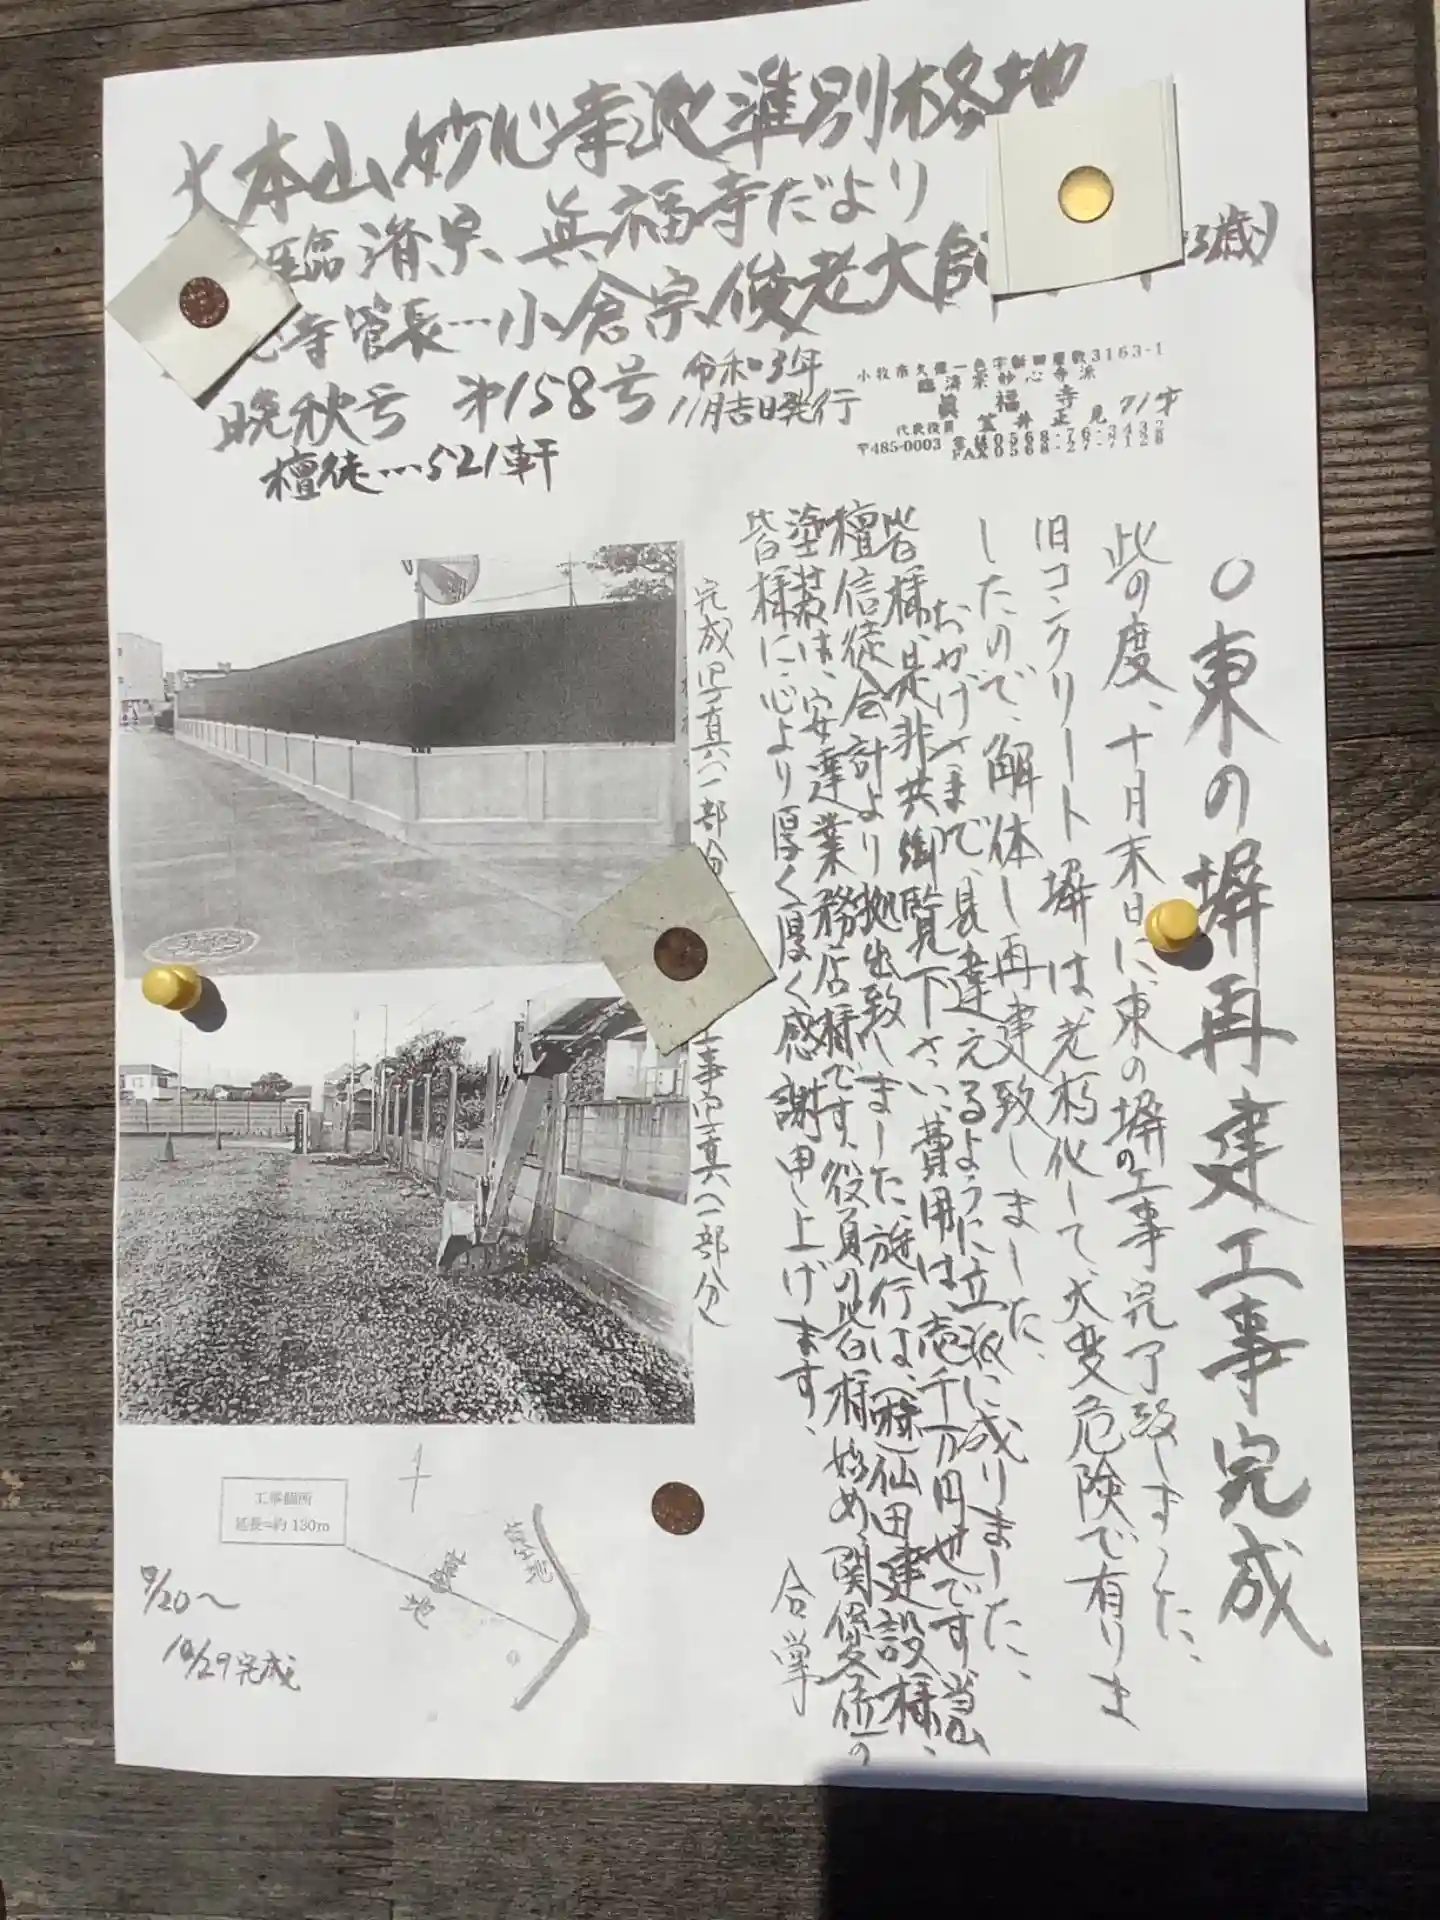 大本山妙心寺派準別格地
臨済宗 眞福寺だより
寺管長…小倉宗俊老大師
歳)
晩秋号 第158号 令和3年
11月吉日発行
檀徒…521軒
小牧市久保一色字新田屋敷3163-1
臨済宗妙心寺派
眞福寺
代表役員 笠井正見 71才
〒485-0003 電話0568-76-3432
FAX0568-27-7128
○東の塀再建工事完成
此の度、十月末日に、東の塀の工事完了致しました、
旧コンクリート塀は、老朽化して大変危険で有りま
したので、解体し再建致しました、
おかげさまで、見違えるように立派に成りました、
皆様、是非共御覧下さい、費用は壱千万円也です、当山
檀信徒会計より拠出致しました、施行は、(株)仙田建設様、
塗装は、安達業務店様です、役員の皆様始め、関係各位の
皆様に心より厚く厚く感謝申し上げます、
合掌
完成写真(一部分)
工事写真(一部分)
工事個所
延長=約130m
墓地
9/20〜
10/29完成